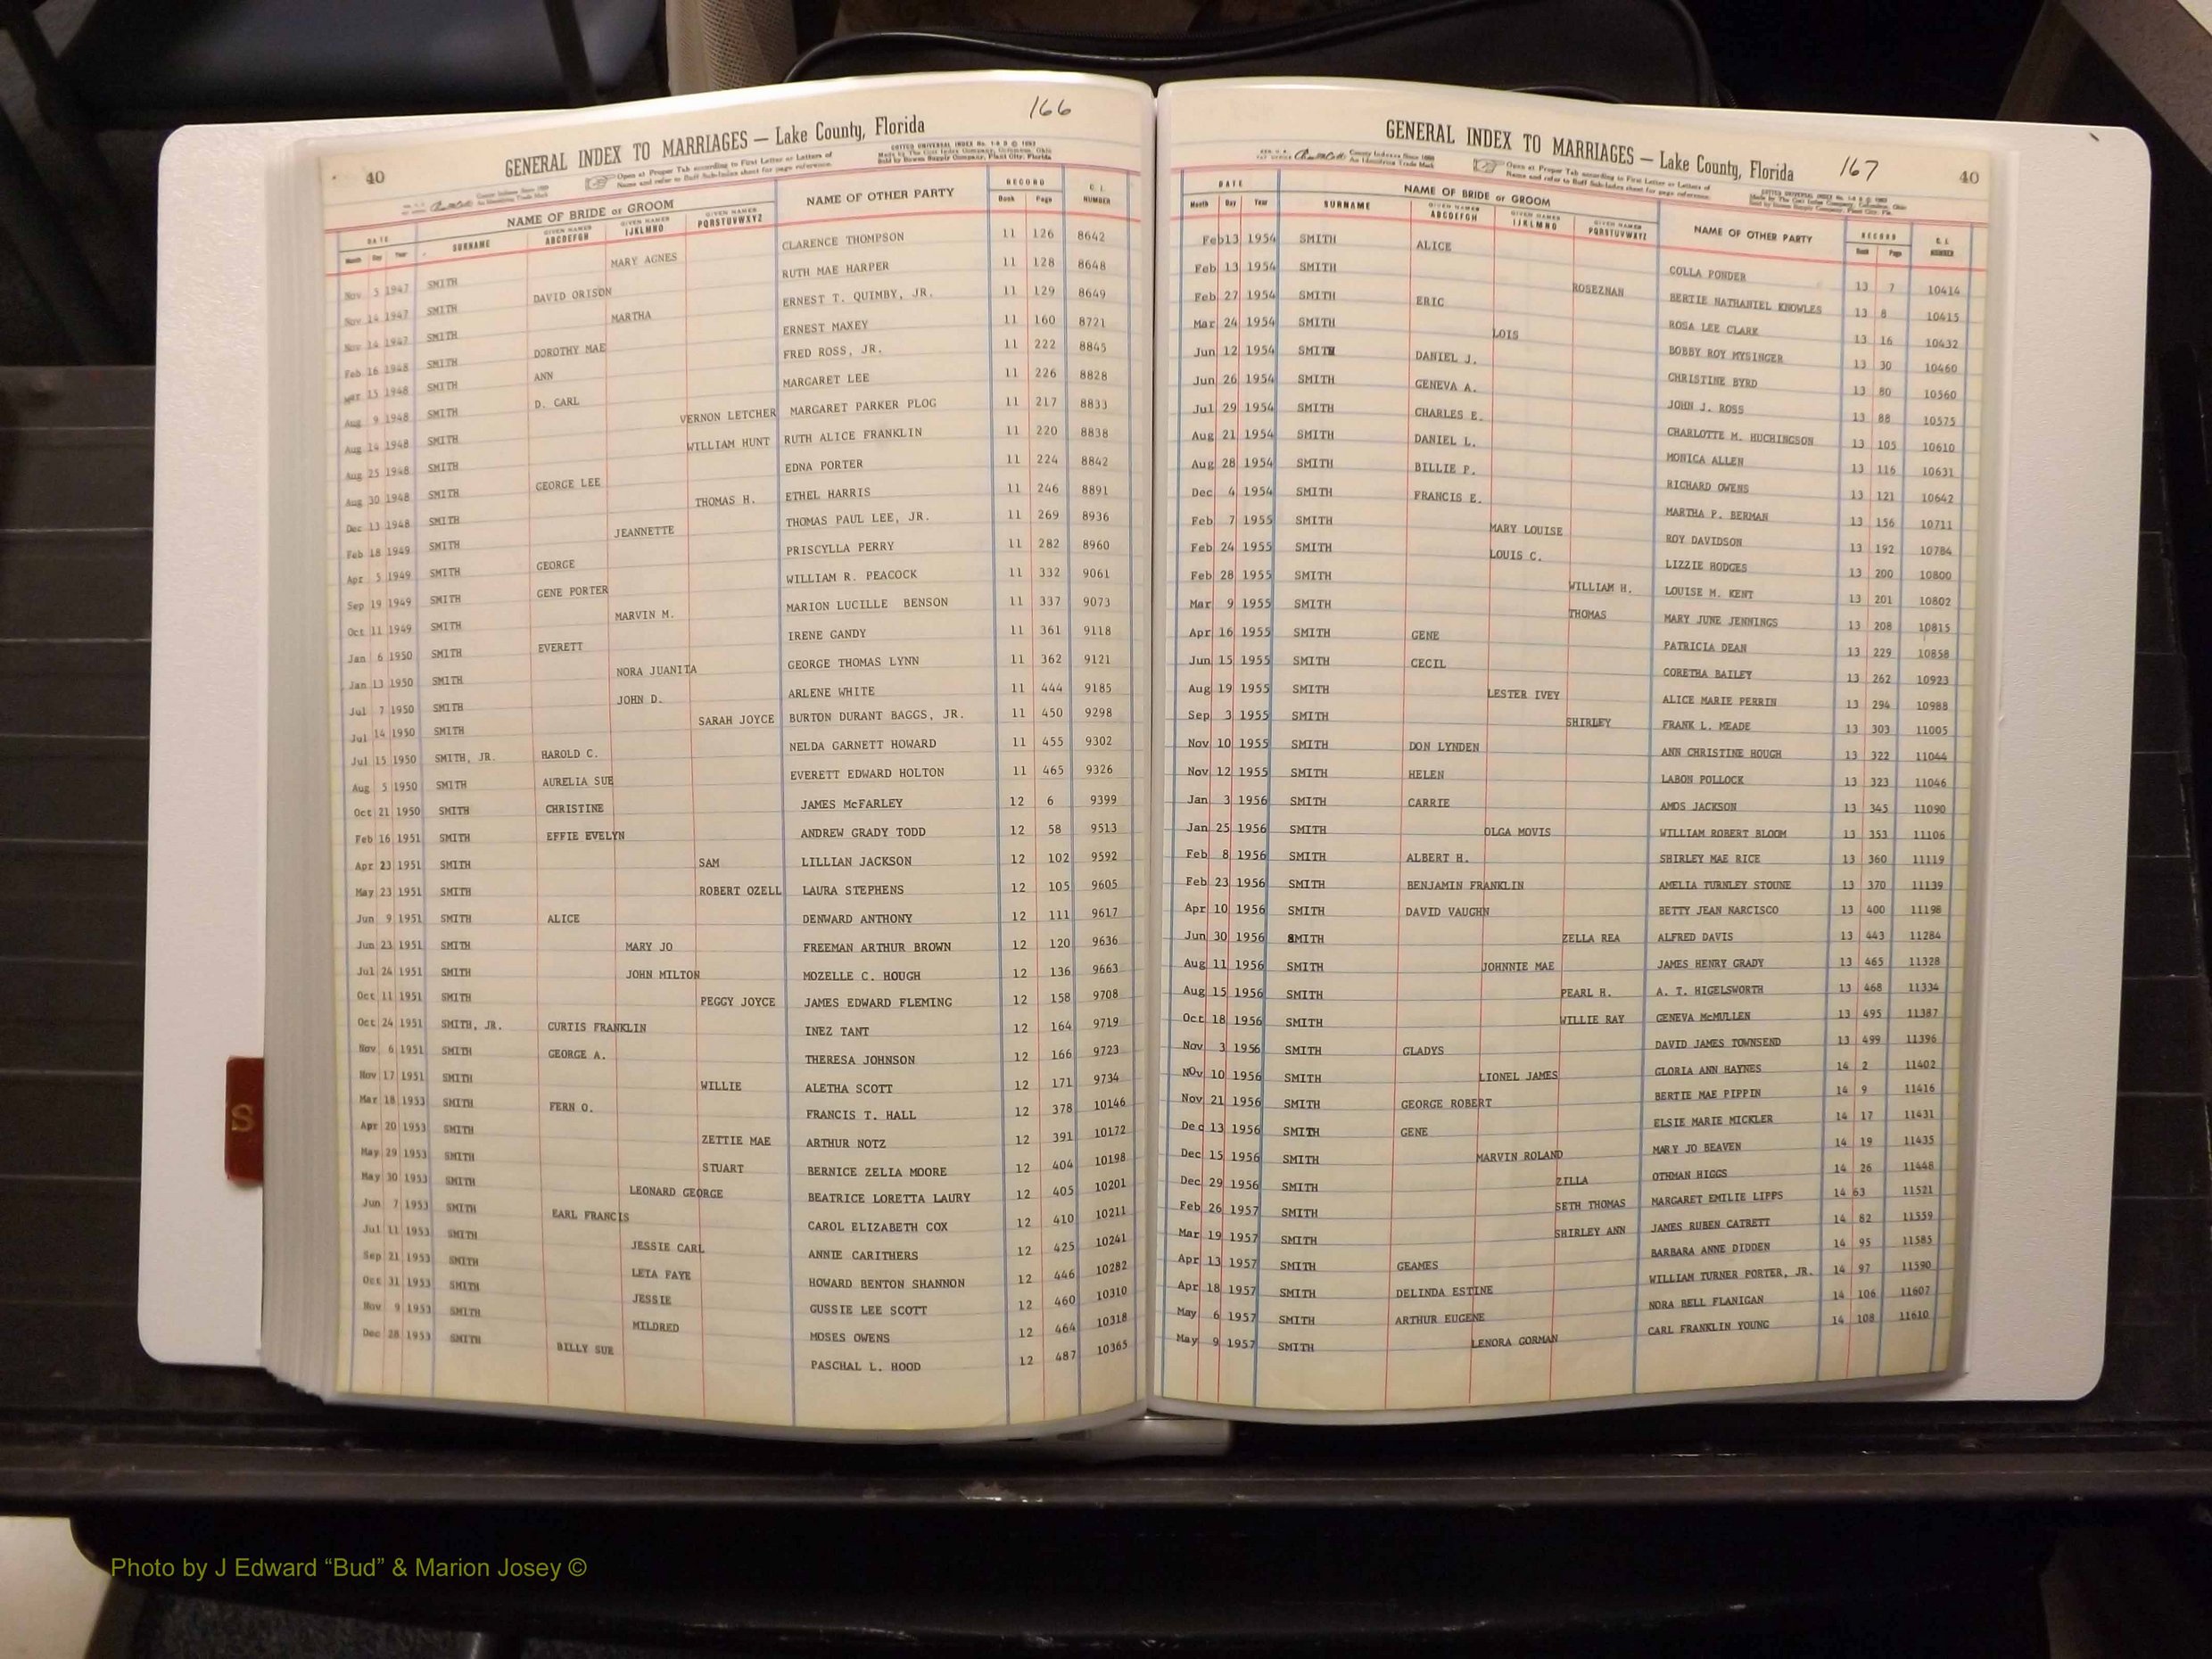 166
40
GENERAL INDEX TO MARRIAGES — Lake County, Florida
Open at Proper Tab according to First Letter or Letters of
Name and refer to Buff Sub-Index sheet for page reference.
DATE NAME OF BRIDE or GROOM NAME OF OTHER PARTY RECORD
Month Day Year SURNAME GIVEN NAMES ABCDEFGH GIVEN NAMES IJKLMNO GIVEN NAMES PQRSTUVWXYZ Book Page NUMBER
Nov 5 1947 SMITH MARY AGNES CLARENCE THOMPSON 11 126 8642
Nov 14 1947 SMITH DAVID ORISON RUTH MAE HARPER 11 128 8648
Nov 14 1947 SMITH MARTHA ERNEST T. QUIMBY, JR. 11 129 8649
Feb 16 1948 SMITH DOROTHY MAE ERNEST MAXEY 11 160 8721
Mar 13 1948 SMITH ANN FRED ROSS, JR. 11 222 8845
Aug 9 1948 SMITH D. CARL MARGARET LEE 11 226 8828
Aug 14 1948 SMITH VERNON LETCHER MARGARET PARKER PLOG 11 217 8833
Aug 25 1948 SMITH WILLIAM HUNT RUTH ALICE FRANKLIN 11 220 8838
Aug 30 1948 SMITH GEORGE LEE EDNA PORTER 11 224 8842
Dec 13 1948 SMITH THOMAS H. ETHEL HARRIS 11 246 8891
Feb 18 1949 SMITH JEANNETTE THOMAS PAUL LEE, JR. 11 269 8936
Apr 5 1949 SMITH GEORGE PRISCYLLA PERRY 11 282 8960
Sep 19 1949 SMITH GENE PORTER WILLIAM R. PEACOCK 11 332 9061
Oct 11 1949 SMITH MARVIN M. MARION LUCILLE BENSON 11 337 9073
Jan 6 1950 SMITH EVERETT IRENE GANDY 11 361 9118
Jan 13 1950 SMITH NORA JUANITA GEORGE THOMAS LYNN 11 362 9121
Jul 7 1950 SMITH JOHN D. ARLENE WHITE 11 444 9185
Jul 14 1950 SMITH SARAH JOYCE BURTON DURANT BAGGS, JR. 11 450 9298
Jul 15 1950 SMITH, JR. HAROLD C. NELDA GARNETT HOWARD 11 455 9302
Aug 5 1950 SMITH AURELIA SUE EVERETT EDWARD HOLTON 11 465 9326
Oct 21 1950 SMITH CHRISTINE JAMES McFARLEY 12 6 9399
Feb 16 1951 SMITH EFFIE EVELYN ANDREW GRADY TODD 12 58 9513
Apr 23 1951 SMITH SAM LILLIAN JACKSON 12 102 9592
May 23 1951 SMITH ROBERT OZELL LAURA STEPHENS 12 105 9605
Jun 9 1951 SMITH ALICE DENWARD ANTHONY 12 111 9617
Jun 23 1951 SMITH MARY JO FREEMAN ARTHUR BROWN 12 120 9636
Jul 24 1951 SMITH JOHN MILTON MOZELLE C. HOUGH 12 136 9663
Oct 11 1951 SMITH PEGGY JOYCE JAMES EDWARD FLEMING 12 158 9708
Oct 24 1951 SMITH, JR. CURTIS FRANKLIN INEZ TANT 12 164 9719
Nov 6 1951 SMITH GEORGE A. THERESA JOHNSON 12 166 9723
Nov 17 1951 SMITH WILLIE ALETHA SCOTT 12 171 9734
Mar 18 1953 SMITH FERN O. FRANCIS T. HALL 12 378 10146
Apr 20 1953 SMITH ZETTIE MAE ARTHUR NOTZ 12 391 10172
May 29 1953 SMITH STUART BERNICE ZELIA MOORE 12 404 10198
May 30 1953 SMITH LEONARD GEORGE BEATRICE LORETTA LAURY 12 405 10201
Jun 7 1953 SMITH EARL FRANCIS CAROL ELIZABETH COX 12 410 10211
Jul 11 1953 SMITH JESSIE CARL ANNIE CARITHERS 12 425 10241
Sep 21 1953 SMITH LETA FAYE HOWARD BENTON SHANNON 12 446 10282
Oct 31 1953 SMITH JESSIE GUSSIE LEE SCOTT 12 460 10310
Nov 9 1953 SMITH MILDRED MOSES OWENS 12 464 10318
Dec 28 1953 SMITH BILLY SUE PASCHAL L. HOOD 12 487 10365
S
GENERAL INDEX TO MARRIAGES — Lake County, Florida
167
40
Open at Proper Tab according to First Letter or Letters of
Name and refer to Buff Sub-Index sheet for page reference.
DATE NAME OF BRIDE or GROOM NAME OF OTHER PARTY RECORD
Month Day Year SURNAME GIVEN NAMES ABCDEFGH GIVEN NAMES IJKLMNO GIVEN NAMES PQRSTUVWXYZ Book Page NUMBER
Feb13 1954 SMITH ALICE COLLA PONDER 13 7 10414
Feb 13 1954 SMITH ROSEZNAH BERTIE NATHANIEL KNOWLES 13 8 10415
Feb 27 1954 SMITH ERIC ROSA LEE CLARK 13 16 10432
Mar 24 1954 SMITH LOIS BOBBY ROY MYSINGER 13 30 10460
Jun 12 1954 SMITH DANIEL J. CHRISTINE BYRD 13 80 10560
Jun 26 1954 SMITH GENEVA A. JOHN J. ROSS 13 88 10575
Jul 29 1954 SMITH CHARLES E. CHARLOTTE M. HUCHINGSON 13 105 10610
Aug 21 1954 SMITH DANIEL L. MONICA ALLEN 13 116 10631
Aug 28 1954 SMITH BILLIE P. RICHARD OWENS 13 121 10642
Dec 4 1954 SMITH FRANCIS E. MARTHA P. BERMAN 13 156 10711
Feb 7 1955 SMITH MARY LOUISE ROY DAVIDSON 13 192 10784
Feb 24 1955 SMITH LOUIS C. LIZZIE HODGES 13 200 10800
Feb 28 1955 SMITH WILLIAM H. LOUISE M. KENT 13 201 10802
Mar 9 1955 SMITH THOMAS MARY JUNE JENNINGS 13 208 10815
Apr 16 1955 SMITH GENE PATRICIA DEAN 13 229 10858
Jun 15 1955 SMITH CECIL CORETHA BAILEY 13 262 10923
Aug 19 1955 SMITH LESTER IVEY ALICE MARIE PERRIN 13 294 10988
Sep 3 1955 SMITH SHIRLEY FRANK L. MEADE 13 303 11005
Nov 10 1955 SMITH DON LYNDEN ANN CHRISTINE HOUGH 13 322 11044
Nov 12 1955 SMITH HELEN LABON POLLOCK 13 323 11046
Jan 3 1956 SMITH CARRIE AMOS JACKSON 13 345 11090
Jan 25 1956 SMITH OLGA MOVIS WILLIAM ROBERT BLOOM 13 353 11106
Feb 8 1956 SMITH ALBERT H. SHIRLEY MAE RICE 13 360 11119
Feb 23 1956 SMITH BENJAMIN FRANKLIN AMELIA TURNLEY STOUNE 13 370 11139
Apr 10 1956 SMITH DAVID VAUGHN BETTY JEAN NARCISCO 13 400 11198
Jun 30 1956 SMITH ZELLA REA ALFRED DAVIS 13 443 11284
Aug 11 1956 SMITH JOHNNIE MAE JAMES HENRY GRADY 13 465 11328
Aug 15 1956 SMITH PEARL H. A. T. HIGELSWORTH 13 468 11334
Oct 18 1956 SMITH WILLIE RAY GENEVA McMULLEN 13 495 11387
Nov 3 1956 SMITH GLADYS DAVID JAMES TOWNSEND 13 499 11396
NOv 10 1956 SMITH LIONEL JAMES GLORIA ANN HAYNES 14 2 11402
Nov 21 1956 SMITH GEORGE ROBERT BERTIE MAE PIPPIN 14 9 11416
Dec 13 1956 SMITH GENE ELSIE MARIE MICKLER 14 17 11431
Dec 15 1956 SMITH MARVIN ROLAND MARY JO BEAVEN 14 19 11435
Dec 29 1956 SMITH ZILLA OTHMAN HIGGS 14 26 11448
Feb 26 1957 SMITH SETH THOMAS MARGARET EMILIE LIPPS 14 63 11521
Mar 19 1957 SMITH SHIRLEY ANN JAMES RUBEN CATRETT 14 82 11559
Apr 13 1957 SMITH GEAMES BARBARA ANNE DIDDEN 14 95 11585
Apr 18 1957 SMITH DELINDA ESTINE WILLIAM TURNER PORTER, JR. 14 97 11590
May 6 1957 SMITH ARTHUR EUGENE NORA BELL FLANIGAN 14 106 11607
May 9 1957 SMITH LENORA GORMAN CARL FRANKLIN YOUNG 14 108 11610
Photo by J Edward “Bud” & Marion Josey ©